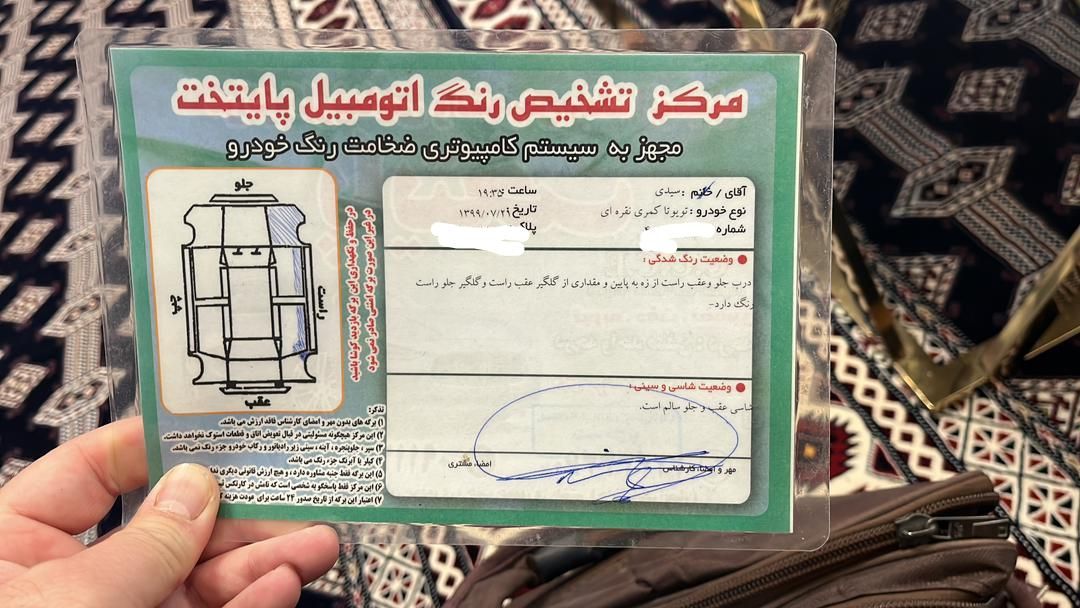 مرکز تشخیص رنگ اتومبیل پایتخت
مجهز به سیستم کامپیوتری ضخامت رنگ خودرو
آقای / خانم : سیدی
ساعت ۱۹:۳۵
نوع خودرو : تویوتا کمری نقره ای
تاریخ ۱۳۹۹/۰۷/۲۹
شماره
پلاک
وضعیت رنگ شدگی :
درب جلو وعقب راست از زه به پایین و مقداری از گلگیر عقب راست وگلگیر جلو راست
رنگ دارد-
وضعیت شاسی و سینی :
شاسی عقب و جلو سالم است.
مهر و امضاء کارشناس
امضاء مشتری
جلو
چپ
راست
عقب
در حفظ و نگهداری این برگه بازدید کوشا باشید
در غیر این صورت برگه المثنی صادر نمی شود
تذکر:
۱) برگه های بدون مهر و امضای کارشناس فاقد ارزش می باشد.
۲) این مرکز هیچگونه مسئولیتی در قبال تعویض اتاق و قطعات استوک نخواهد داشت.
۳) سپر ، جلوپنجره ، آینه ، سینی زیر رادیاتور و رکاب خودرو جزء رنگ نمی باشد.
۴) گیلر یا آبرنگ جزء رنگ نمی باشد.
۵) این برگه فقط جنبه مشاوره دارد ، و هیچ ارزش قانونی دیگری ندا
۶) این مرکز فقط پاسخگو به شخصی است که نامش در کارتکس
۷) اعتبار این برگه از تاریخ صدور ۲۴ ساعت برای عودت هزینه